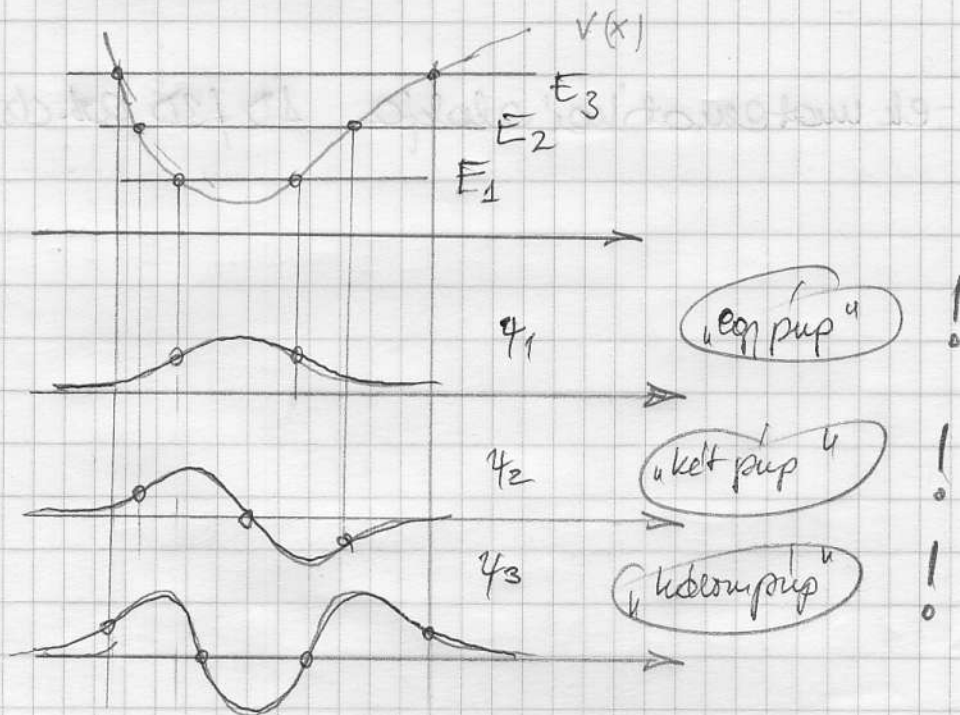 V(x)
E3
E2
E1
ψ1 „egy púp" !
ψ2 „két púp" !
ψ3 „három púp" !